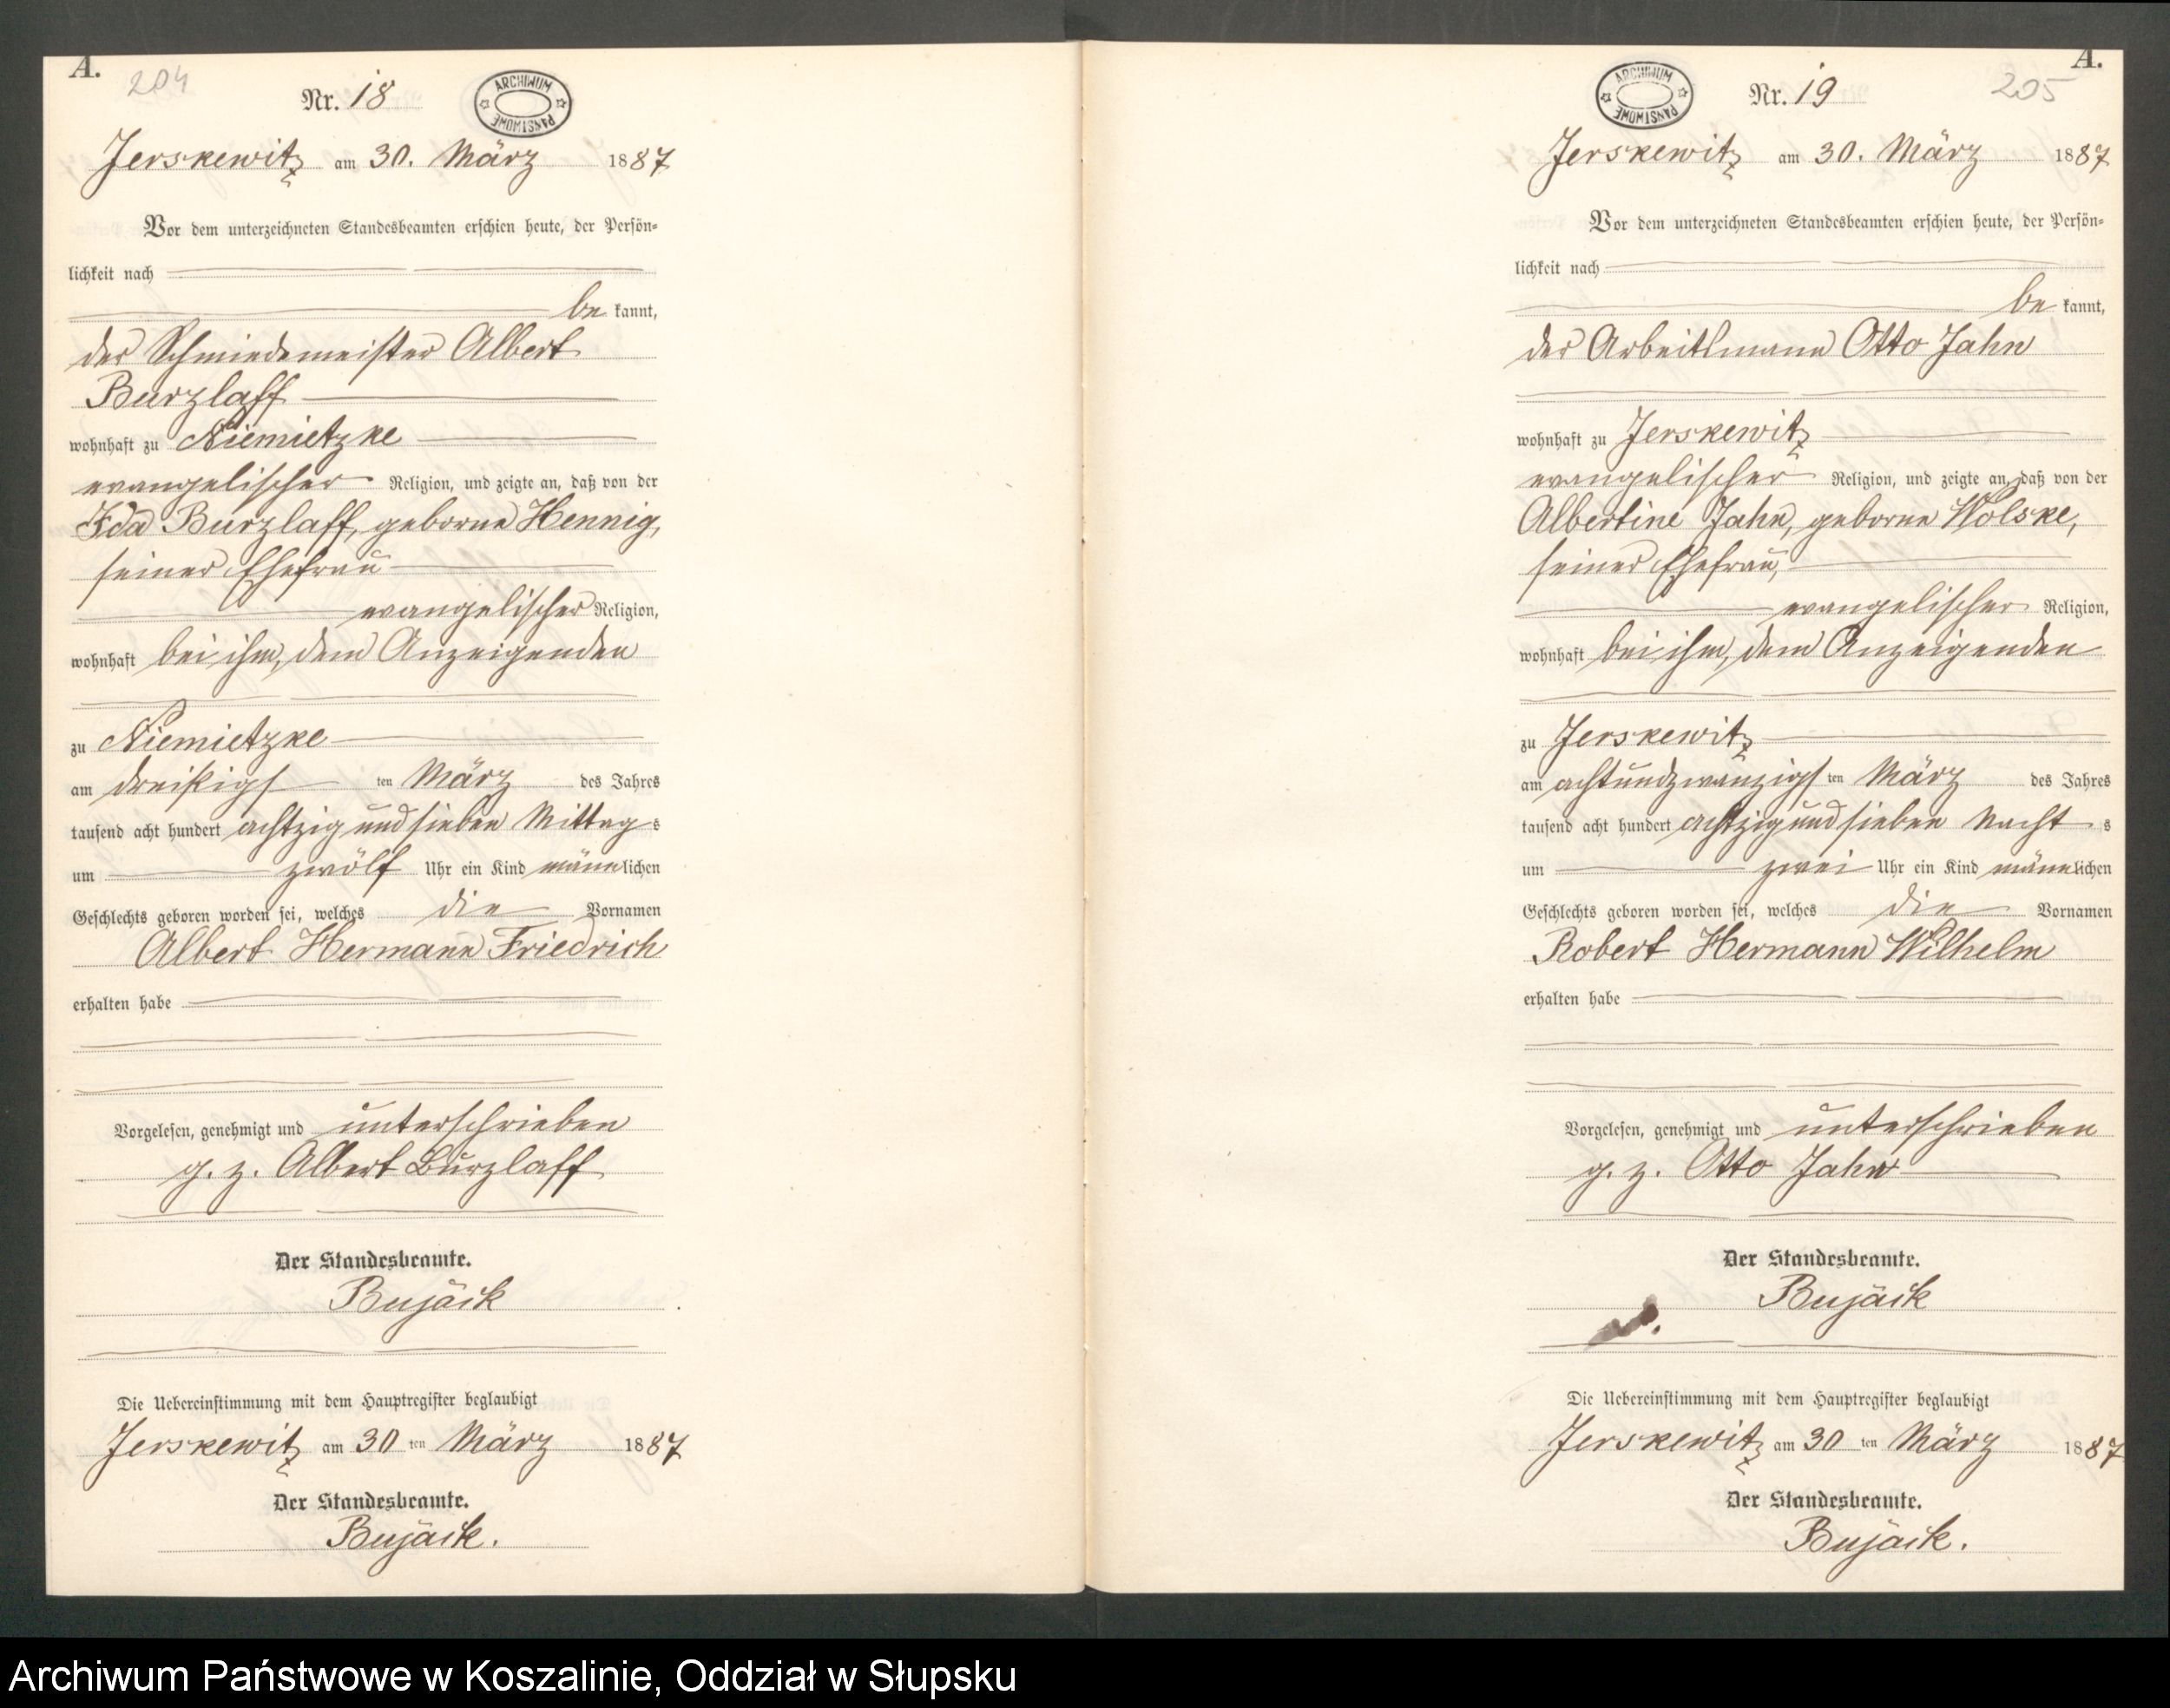 A.
204
Nr. 18
ARCHIWUM PAŃSTWOWE
Jerskewitz am 30. März 1887
Vor dem unterzeichneten Standesbeamten erschien heute, der Persön-
lichkeit nach
be kannt,
der Schmiedemeister Albert
Burzlaff
wohnhaft zu Niemietzke
evangelischer Religion, und zeigte an, daß von der
Ida Burzlaff, geborne Hennig,
seiner Ehefrau
evangelischer Religion,
wohnhaft bei ihm, dem Anzeigenden
zu Niemietzke
am dreißigsten März des Jahres
tausend acht hundert achtzig und sieben Mittags
um zwölf Uhr ein Kind männlichen
Geschlechts geboren worden sei, welches die Vornamen
Albert Hermann Friedrich
erhalten habe
Vorgelesen, genehmigt und unterschrieben
g. z. Albert Burzlaff
Der Standesbeamte.
Bujäck
Die Uebereinstimmung mit dem Hauptregister beglaubigt
Jerskewitz am 30 ten März 1887
Der Standesbeamte.
Bujäck.
A.
205
Nr. 19
ARCHIWUM PAŃSTWOWE
Jerskewitz am 30. März 1887
Vor dem unterzeichneten Standesbeamten erschien heute, der Persön-
lichkeit nach
be kannt,
der Arbeitsmann Otto Jahn
wohnhaft zu Jerskewitz
evangelischer Religion, und zeigte an, daß von der
Albertine Jahn, geborne Wolske,
seiner Ehefrau,
evangelischer Religion,
wohnhaft bei ihm, dem Anzeigenden
zu Jerskewitz
am achtundzwanzigsten März des Jahres
tausend acht hundert achtzig und sieben Nachts
um zwei Uhr ein Kind männlichen
Geschlechts geboren worden sei, welches die Vornamen
Robert Hermann Wilhelm
erhalten habe
Vorgelesen, genehmigt und unterschrieben
g. z. Otto Jahn
Der Standesbeamte.
Bujäck
Die Uebereinstimmung mit dem Hauptregister beglaubigt
Jerskewitz am 30 ten März 1887
Der Standesbeamte.
Bujäck.
Archiwum Państwowe w Koszalinie, Oddział w Słupsku